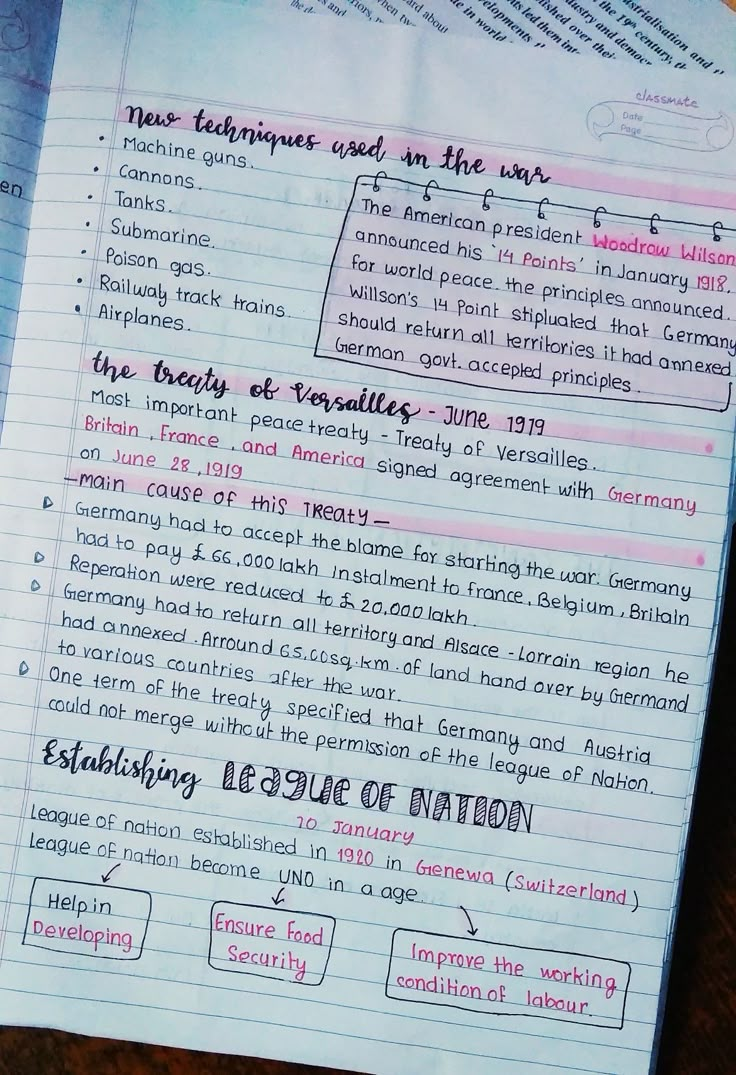 the 19th century, th
strialisation and
ustry and democr
ished over thei
ts led them int
elopments
te in world
ard about
hen tw
s and
classmate
Date
Page
en
New techniques used in the war
• Machine guns.
• Cannons.
• Tanks.
• Submarine.
• Poison gas.
• Railway track trains.
• Airplanes.
The American president Woodrow Wilson
announced his '14 Points' in January 1918.
for world peace. the principles announced.
Willson's 14 Point stipluated that Germany
should return all territories it had annexed
German govt. accepted principles.
the treaty of Versailles - June 1919
Most important peace treaty - Treaty of Versailles.
Britain, France, and America signed agreement with Germany
on June 28, 1919
-main cause of this Treaty-
Germany had to accept the blame for starting the war. Germany
had to pay £ 66,000 lakh instalment to france, Belgium, Britain
Reperation were reduced to £ 20,000 lakh.
Germany had to return all territory and Alsace - Lorrain region he
had annexed. Arround 65,00sq.km. of land hand over by Germand
to various countries after the war.
One term of the treaty specified that Germany and Austria
could not merge without the permission of the league of Nation.
Establishing LEAGUE OF NATION
10 January
League of nation established in 1920 in Genewa (Switzerland)
League of nation become UNO in a age.
Help in
Developing
Ensure Food
Security
Improve the working
condition of labour.